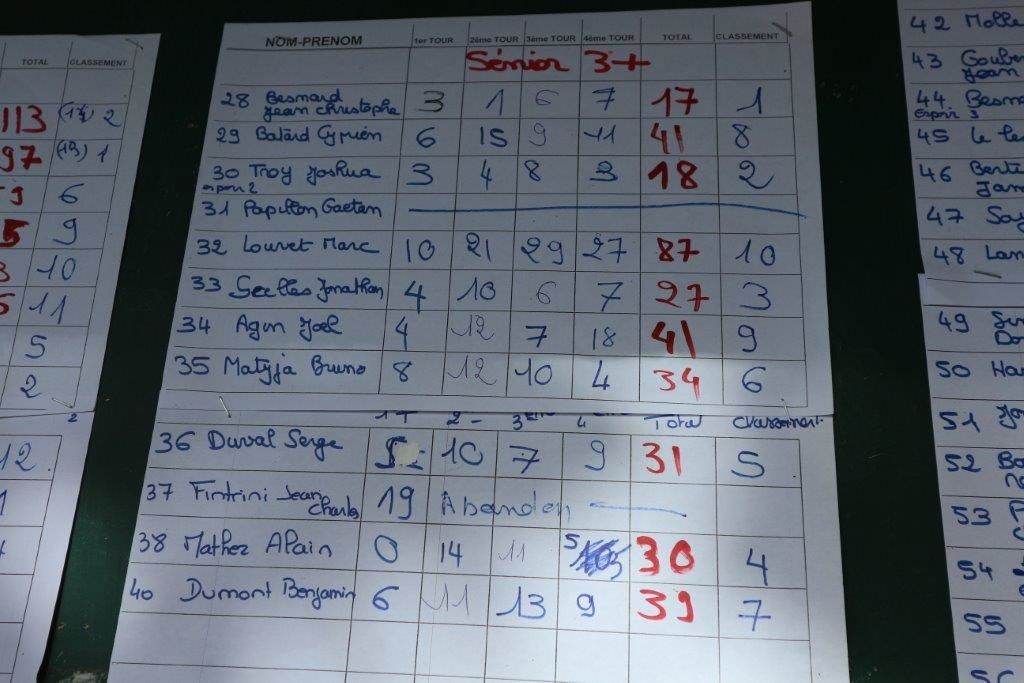 TOTAL CLASSEMENT
113 (14) 2
97 (13) 1
6
9
10
11
5
2
2
12
NOM-PRENOM 1er TOUR 2ème TOUR 3ème TOUR 4ème TOUR TOTAL CLASSEMENT
Sénior 3+
28 Besnard Jean Christophe 3 1 6 7 17 1
29 Balard Cyprien 6 15 9 11 41 8
30 Troy Joshua 3 4 8 3 18 2
espoir 2
31 Papillon Gaetan
32 Louvet Marc 10 21 29 27 87 10
33 Scelles Jonathan 4 10 6 7 27 3
34 Agin Joel 4 12 7 18 41 9
35 Matyja Bruno 8 12 10 4 34 6
1T 2 - 3ème 4 Total Classement
36 Duval Serge 5 10 7 9 31 5
37 Fintrini Jean Charles 19 Abandon
38 Mathez Alain 0 14 11 5 30 4
40 Dumont Benjamin 6 11 13 9 39 7
42 Molle
43 Goube
Jean
44. Besna
espoir 3
45 Le
46 Bert
47
48 Lan
49
50 Ha
51
52
53
54
55